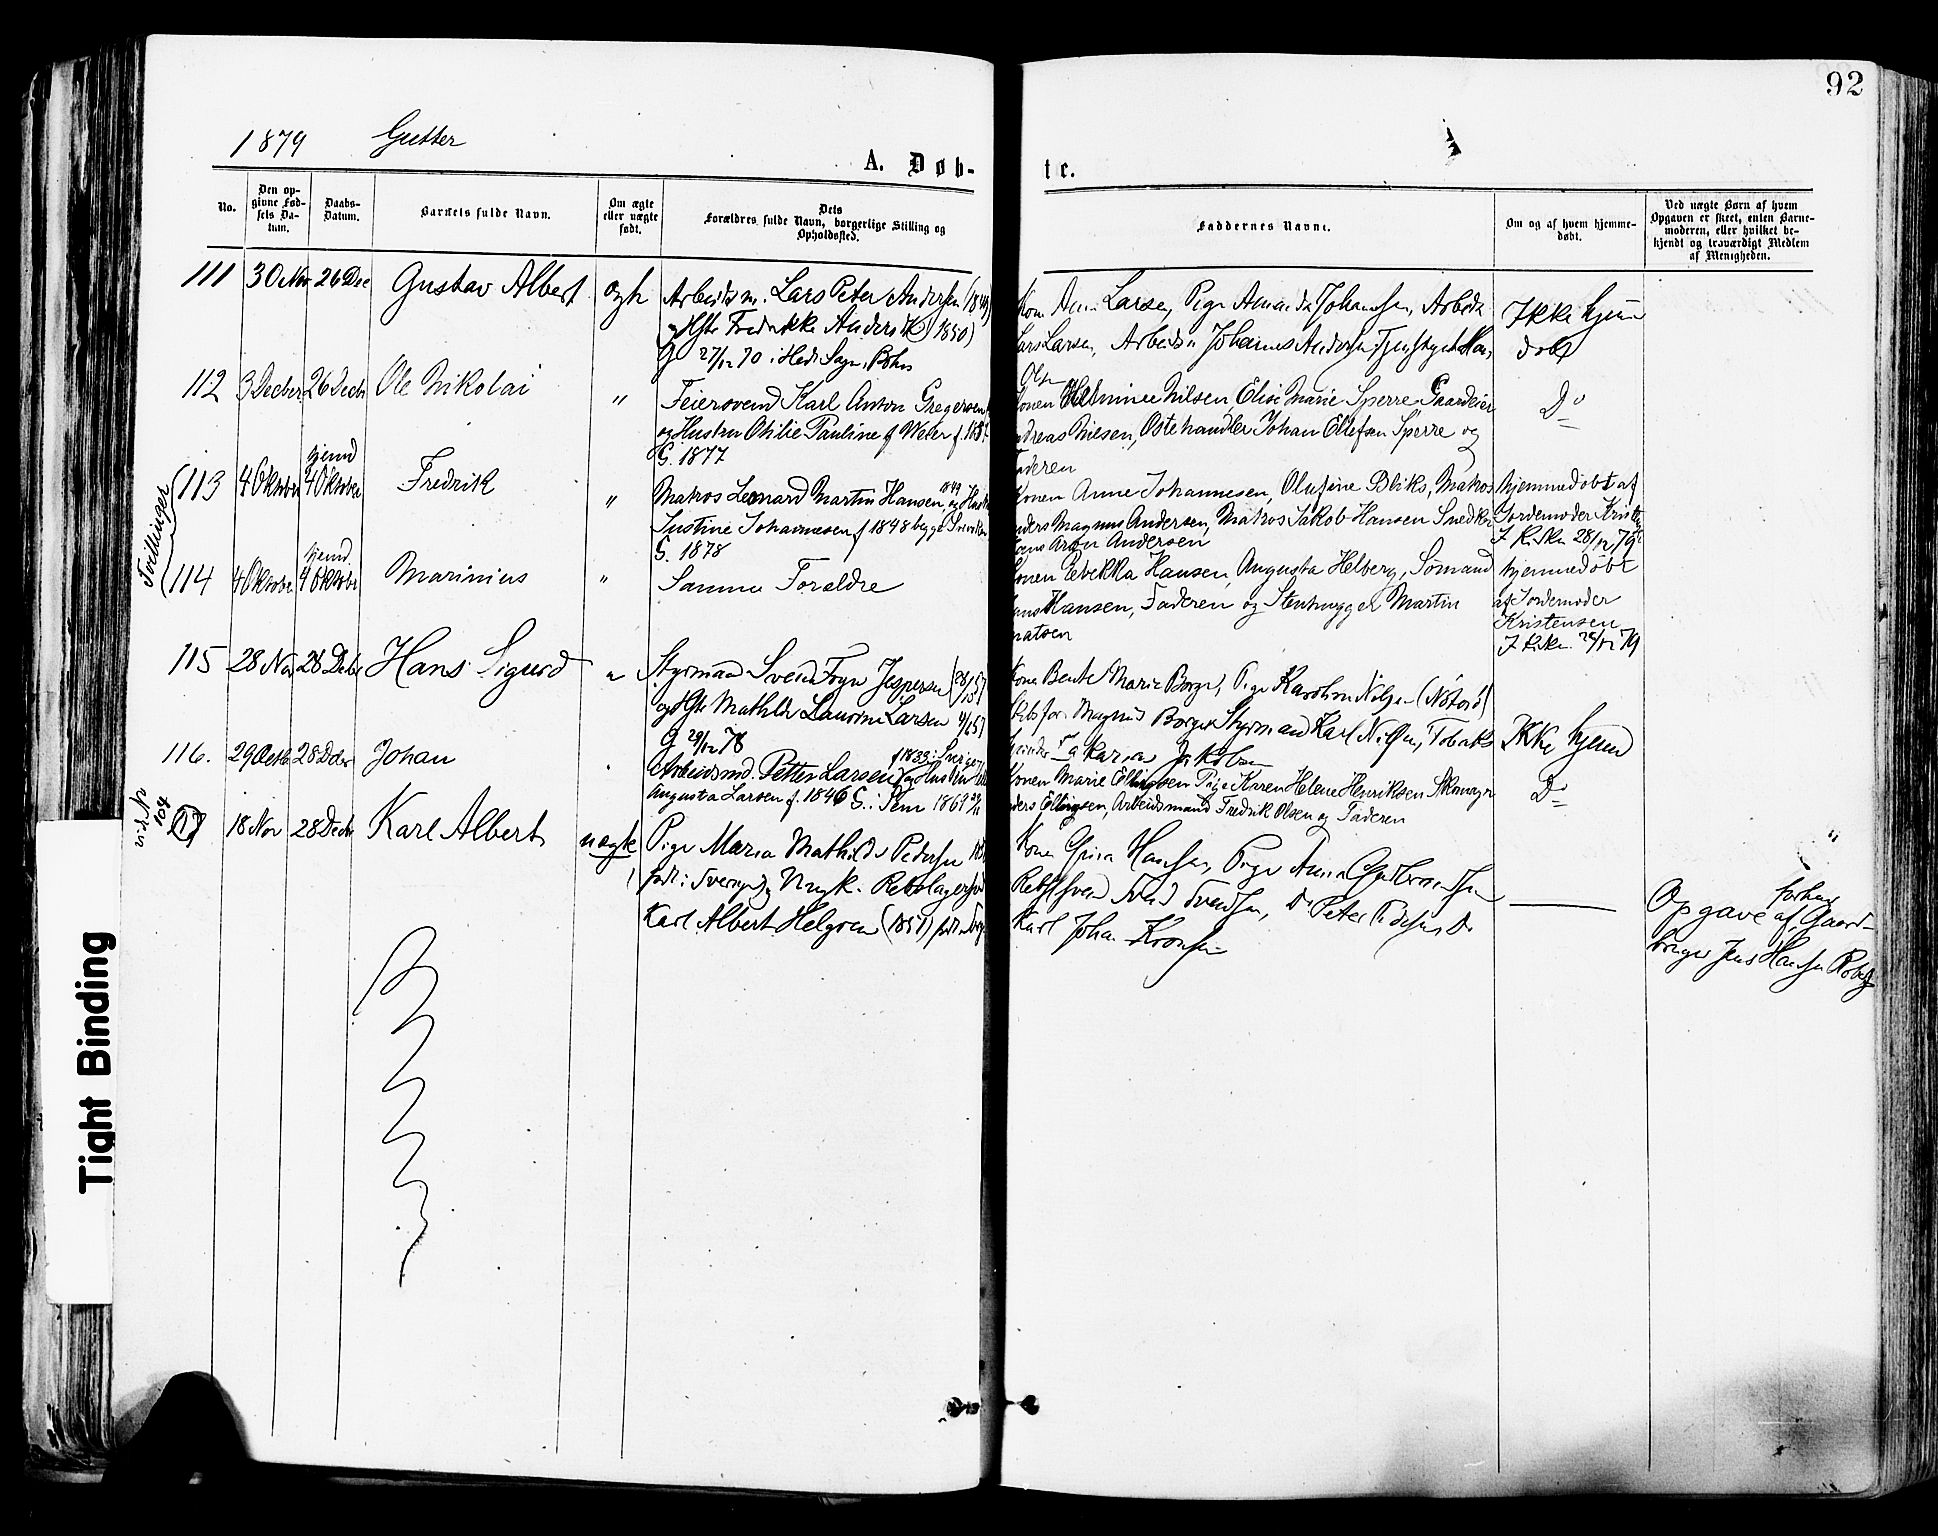 92
1879 Gutter
A. Døb-
te.
No.
Den op-
givne Fød-
sels Da-
tum.
Daabs-
Datum.
Barnets fulde Navn.
Om ægte
eller uægte
født.
Dets
Forældres fulde Navn, borgerlige Stilling og
Opholdssted.
Faddernes Navne.
Om og af hvem hjemme-
døbt.
Ved uægte Børn af hvem
Opgaven er skeet, enten Barne-
moderen, eller hvilket be-
kjendt og troværdigt Medlem
af Menigheden.
111 30 Nov 26 Dec Gustav Albert ægte Arbeidsm. Lars Peter Andersen
og Hstr Fredrikke 1850)
G 27/12 70 i
Larsen, Pige Amanda Johansen, Arbeids
Lars Larsen, Johannes Andersen
Olsen
Ikke hjem
døbt
112 3 Decber 26 Decbr Ole Nikolai " Feiersvend Karl Anton Gregersen
og Hustru Othilie Pauline f. Weier f.
G. 1877
Konen Helminee Nilsen Elise Marie Sperre Gaardeier
Andreas Nilsen, Ostehandler Johan Ellefsen Sperre og
Faderen
Do
Tvillinger
113 4 Oktober hjemd 4 Oktober Fredrik " Matros Leonard Martin Hansen 1849 og Hustru
Justine Johannesen f 1848 begge
G. 1878
Konen Anne Johannesen, Olufine Bliks, Matros
Anders Magnus Andersen, Matros Jakob Hansen Snedker
Aron Andersen
hjemmedøbt af
Jordemoder
I Kirken 28/12 79
114 4 Oktober hjemd 4 Oktober Marinius " Samme Foraldre
Konen Hansen, Augusta Helberg, Sømand
Hans Hansen, Faderen og Stenhugger Martin
hjemmedøbt
af Jordemoder
Kristensen
I Kirken 28/12 79
115 28 Nov 28 Decbr Hans Sigurd " Styrmand Svend Foyn Jespersen
og Hstr Mathilde Laurine Larsen
G 29/12 78
Kone Bente Marie Borge, Pige Karoline Nilsen (Nøterø)
Magnus Borge Styrmand Karl Nilsen, Tobaks
Jakobsen
Ikke hjemd
116. 29 Octb 28 Dcbr Johan Arbeidsmd. Petter Larsen f 1833 i Sverige og Hustru
Augusta Larsen f. 1846 G. i Sem 1861
Konen Marie Ellingsen Pige Karen Helene Henriksen
Anders Ellingsen, Arbeidsmand Fredrik Olsen og Faderen
Do
vide No
104
117 18 Nov 28 Decbr Karl Albert uægte Pige Maria Mathilde Pedersen
født i Sverige, Ungk. Rebslagersvend
Karl Albert Helgren (1857) født i
Kone Hansen, Pige Anna
Rebslsvend Svend Svendsen, Do Peter Do
Karl Johan
Opgave forhen af Gaard-
bruger Jens Hansen
Tight Binding